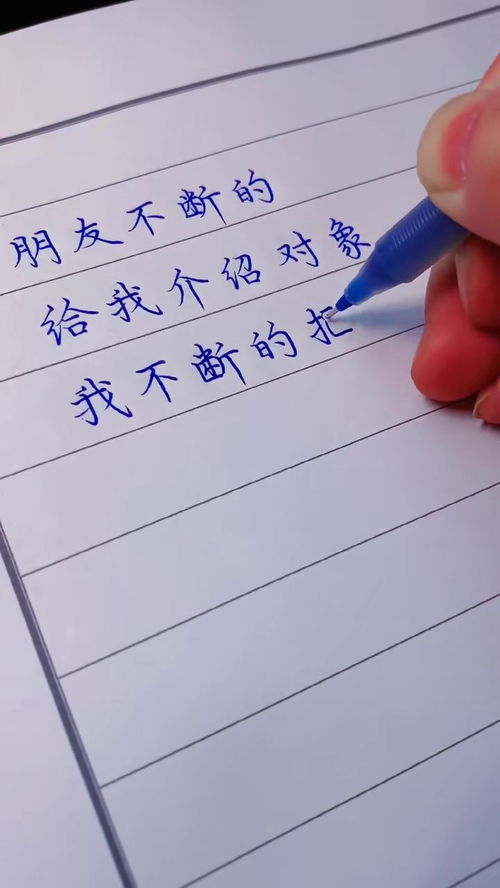 朋友不断的
给我介绍对象
我不断的